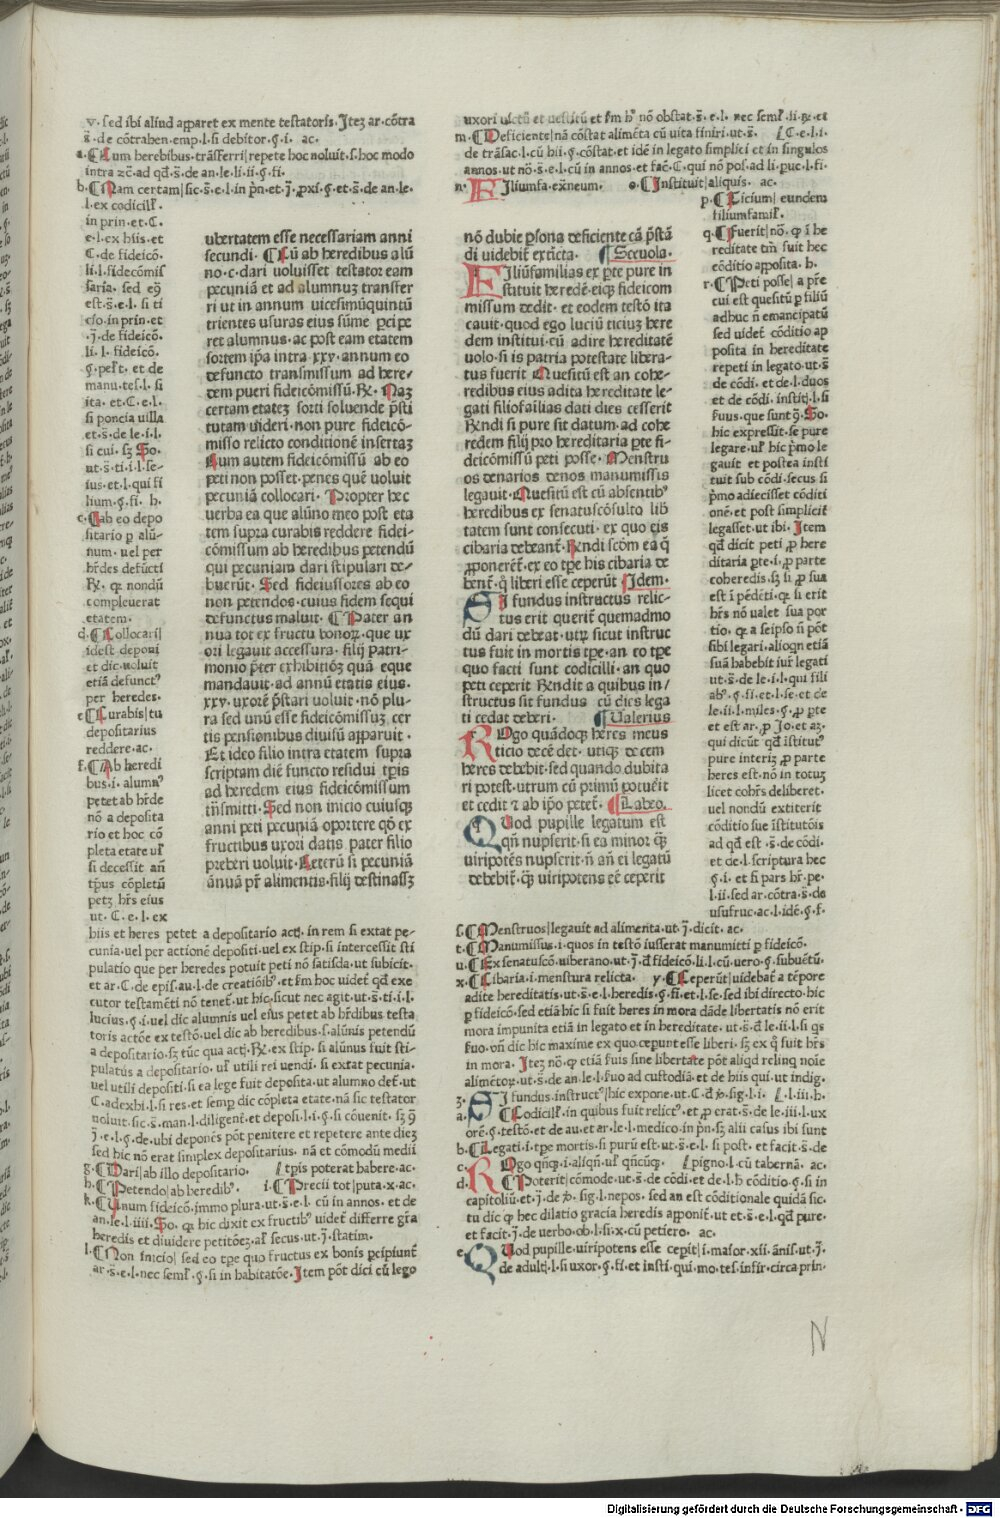 v· sed ibi aliud apparet ex mente testatoris· Itez ar· cõtra
s̃· de cõtrahen· emp· l· si debitor· §· i· ac·
a·¶Cum heredibus trãsferri|repete hoc noluit·s·hoc modo
intra zc̃·ad qd̃·s̃·de an·le·li·ii·§·fi·
b·¶Nam certam|sic·s̃·e·l·in pñ·et·j̃·pxi·§·et·s̃·de an·le·
l·ex codicill̃·
in prin·et·C·
e·l·ex hiis·et
C·de fideicõ·
li·l·fidecõmis
saria·sed eq̃
est·s̃·e·l·si ti
cio·in prin·et
·j̃·de fideicõ·
li·l·fideicõ·
§·pest̃·et de
manu·tes·l·si
ita·et·C·e·l·
si poncia uilla
et·s̃·de le·i·l·
si cui·sz So·
ut·s̃·ti·i·l·se-
ius·et·l·qui fi
lium·§·fi·h·
c·¶ab eo depo
sitario p alũ-
num·uel per
hr̃des defũcti
R̃·qr nondũ
compleuerat
etatem·
d·¶Collocari|
idest deponi
et dic·uoluit
etiã defunct'
per heredes·
e¶Curabis|tu
depositarius
reddere·ac·
f·¶Ab heredi
bus·i·alumn'
petet ab hr̃de
nõ a deposita
rio et hoc cõ
pleta etate ul̃
si decessit añ
tp̃us cõpletũ
petz hr̃s eius
ut·C·e·l·ex
hiis et heres petet a depositario actj·in rem si extat pe-
cunia·uel per actionẽ depositi·uel ex stip·si intercessit sti
pulatio que per heredes potuit peti nõ satisda·ut subicit·
et ar·C·de epis·au·l·de creatiõib'·et fm hoc uidet̃ qd̃ exe
cutor testamẽti nõ tenet̃·ut hic·sicut nec agit·ut·s̃·ti·i·l·
lucius·§·i·uel dic alumnis uel eius petet ab hr̃dibus testa
toris actõe ex testõ·uel dic ab heredibus·s·alũnis petendũ
a depositario·sz tũc qua actj·R̃·ex stip·si alũnus fuit sti-
pulatus a depositario·ul̃ utili rei uendi·si extat pecunia·
uel utili depositi·si ea lege fuit deposita·ut alumno det̃·ut
C·adexhi·l·si res·et semp dic cõpleta etate·nã sic testator
uoluit·sic·s̃·man·l·diligent̃·et deposi·l·i·§·si cõuenit·sz q̃
j̃·e·l·§·de·ubi deponẽs põt penitere et repetere ante diez
sed hic nõ erat simplex depositarius·nã et cõmodũ medii
g·¶Dari|ab illo depositario· [tp̃is poterat habere·ac·
h·¶Petendo|ab heredib'· i·¶Precii tot|puta·x·ac·
k·¶Vnum fideicõ·immo plura·ut·s̃·e·l·cũ in annos·et de
an·le·l·iiii·So·qr hic dixit ex fructib' uidet̃ differre gr̃a
heredis et diuidere petitõez·al̃ secus·ut·j̃·statim·
l·¶Non inicio|sed eo tp̃e quo fructus ex bonis p̃cipiunt̃
ar·s̃·e·l·nec seml̃·§·si in habitatõe·Item põt dici cũ lego
ubertatem esse necessariam anni
secundi· ¶Cũ ab heredibus alũ
no·c·dari uoluisset testator eam
pecuniã et ad alumnuz transfer
ri ut in annum uicesimũquintũ
trientes usuras eius sũme pcipe
ret alumnus·ac post eam etatem
sortem ip̃a intra·xxv·annum eo
defuncto transmissum ad here-
dem pueri fideicõmissũ·R̃·Naz
certam etatez sorti soluende p̃sti
tutam uideri·non pure fideicõ-
misso relicto conditionẽ insertaz
Cum autem fideicõmissũ ab eo
peti non posset·penes quẽ uoluit
pecuniã collocari·Propter hec
uerba ea que alũno meo post eta
tem supra curabis reddere fidei-
cõmissum ab heredibus petendũ
qui pecuniam dari stipulari de-
buerũt·Sed fideiussores ab eo
non petendos·cuius fidem sequi
defunctus maluit·¶Pater an
nua tot ex fructu bonorz·que ux
ori legauit accessura·filij patri-
monio p̃ter exhibitiõz quã eque
mandauit·ad annũ etatis eius·
xxv·uxorẽ p̃stari uoluit·nõ plu-
ra sed unũ esse fideicõmissuz cer
tis pensionibus diuisũ apparuit·
Et ideo filio intra etatem supra
scriptam diẽ functo residui tp̃is
ad heredem eius fideicõmissum
tñsmitti·Sed non inicio cuiusqz
anni peti pecuniã oportere qõ ex
fructibus uxori datis pater filio
preberi uoluit·Ceterũ si pecuniã
ãnuã pr̃ alimentis·filij destinassz
uxori usctũ et uestitũ et fm h' nõ obstat·s̃·e·l·nec seml̃·li·R̃·et
m·¶Deficiente|nã cõstat alimẽta cũ uita finiri·ut·s̃· [C·e·l·i·
de trãsac·l·cũ hii·§·cõstat·et idẽ in legato simplici et in singulos
annos·ut nõ·s̃·e·l·cũ in annos·et fac̃·C·qui nõ pos·ad li·puc·l·fi·
n·Filiumfa·exneum· o·¶Instituit|aliquis·ac·
p·¶Ticium|eundem
filiumfamil̃·
q·¶Fuerit|nõ·q i he
reditate tm̃ fuit hec
cõditio apposita·h·
r·¶Peti posse|a pr̃e
cui est quesitũ p filiũ
adhuc ñ emancipatũ
sed uidet̃ cõditio ap
posita in hereditate
repeti in legato·ut·s̃
de cõdi·et de·l·duos
et de cõdi·institj·l·si
fuus·que sunt q̃·So·
hic expressit·se pure
legare·ul̃ hic p̃mo le
gauit et postea insti
tuit sub cõdi·secus si
p̃mo adiecisset cõditi
onẽ·et post simplicit̃
legasset·ut ibi·Item
qd̃ dicit peti p here
ditaria p̃te·i·p parte
coheredis·sz si p sua
est i pẽdẽti·qr si erit
hr̃s nõ ualet sua por
tio·qr a seipso ñ põt
sibi legari·alioqn etiã
suã habebit iur̃ legati
ut·s̃·de le·i·l·qui fili
ab'·§·fi·et·l·se·et de
le·ii·l·miles·§·p p̃te
et est ar·p Jo·et az·
qui dicũt qd̃ istitut'
pure interiz p parte
heres est·nõ in totuz
licet cohr̃s deliberet·
uel nondũ extiterit
cõditio sue istitutõis
ad qd̃ est·s̃·de cõdi·
et de·l·scriptura hec
§·i·et si pars hr̃·pe·
l·ii·sed ar·cõtra·s̃·de
usufruc·ac·l·idẽ·§·f·
nõ dubie psona deficiente cã p̃stã
di uidebit̃ exticta· ¶Sceuola·
Filiũfamilias ex p̃te pure in
stituit heredẽ·eiqz fideicom
missum dedit·et eodem testõ ita
cauit·quod ego luciũ ticiuz here
dem institui·cũ adire hereditatẽ
uolo·si is patria potestate libera-
tus fuerit Quesitũ est an cohe-
redibus eius adita hereditate le-
gati filiofailias dati dies cesserit
R̃ndi si pure sit datum·ad cohe
redem filij pro hereditaria p̃te fi-
deicõmissũ peti posse·Menstru
os denarios denos manumissis
legauit·Quesitũ est cũ absentib'
heredibus ex senatuscõsulto lib
tatem sunt consecuti·ex quo eis
cibaria debeant̃·R̃ndi scõm ea q̃
pponerẽt̃·ex eo tp̃e his cibaria de
bent̃·q̃ liberi esse ceperũt ¶Idem·
Si fundus instructus relic-
tus erit querit̃ quemadmo
dũ dari debeat·utrz sicut instruc
tus fuit in mortis tp̃e·an eo tp̃e
quo facti sunt codicilli·an quo
peti ceperit R̃ndit a quibus in/
structus sit fundus cũ dies lega
ti cedat deberi· ¶Valerius
Rogo quãdoqz heres meus
ticio decẽ det·utiqz decem
heres debebit·sed quando dubita
ri potest·utrum cũ primũ potuerit
et cedit z ab ip̃o petet̃· ¶Labeo·
Quod pupille legatum est
qñ nupserit·si ea minor qz
uiripotẽs nupserit·ñ añ ei legatũ
debebit̃·qz uiripotens eẽ ceperit
s·¶Menstruos|legauit ad alimenta·ut·j̃·dicit·ac·
t·¶Manumissus·i·quos in testõ iusserat manumitti p fideicõ·
u·¶Ex senatuscõ·uiberano·ut·j̃·d̃ fideicõ·li·l·cũ uero·§·subuẽtũ·
x·¶Cibaria·i·menstura relicta· y·¶Ceperũt|uidebat̃ a tẽpore
adite hereditatis·ut·s̃·e·l·heredis·§·fi·et·l·se·sed ibi directo·hic
p fideicõ·sed etiã hic si fuit heres in mora dãde libertatis nõ erit
mora impunita etiã in legato et in hereditate·ut·s̃·d̃ le·ii·l·si qs
fuo·vñ dic hic maxime ex quo ceperunt esse liberi·sz ex q̃ fuit hr̃s
in mora·Itez nõ·q etiã fuis sine libertate põt aliqd relinq noie
alimẽtorz·ut·s̃·de an·le·l·fuo ad custodiã·et de hiis qui ut indig·
z·Si fundus·instruct'|hic expone·ut·C·d̃ p̃·sig·l·i· [l·iii·h·
a·¶Codicill̃·in quibus fuit relict'·et p erat·s̃·de le·iii·l·ux
orẽ·§·testõ·et de au·et ar·le·l·medico·in pñ·sz alii casus ibi sunt
b·¶Legati·i·tp̃e mortis·si purũ est·ut·s̃·e·l·si post·et facit·s̃·de
c·Rogo qñqz·i·aliqñ·ul̃ qñcũqz· [pigno·l·cũ tabernã·ac·
d·¶Poterit|cõmode·ut·s̃·de cõdi·et de·l·h cõditio·§·si in
capitoliũ·et·j̃·de p̃·sig·l·nepos·sed an est cõditionale quidã sic·
tu dic q hec dilatio gracia heredis apponit̃·ut et·s̃·e·l·qd̃ pure·
et facit·j̃·de verbo·ob·l·si·x·cũ petiero·ac·
e·Quod pupille·uiripotens esse cepit|i·maior·xii·ãnis·ut·j̃·
de adultj·l·si uxor·§·fi·et insti·qui·mo·tes·infir·circa prin·
N
Digitalisierung gefördert durch die Deutsche Forschungsgemeinschaft - DFG